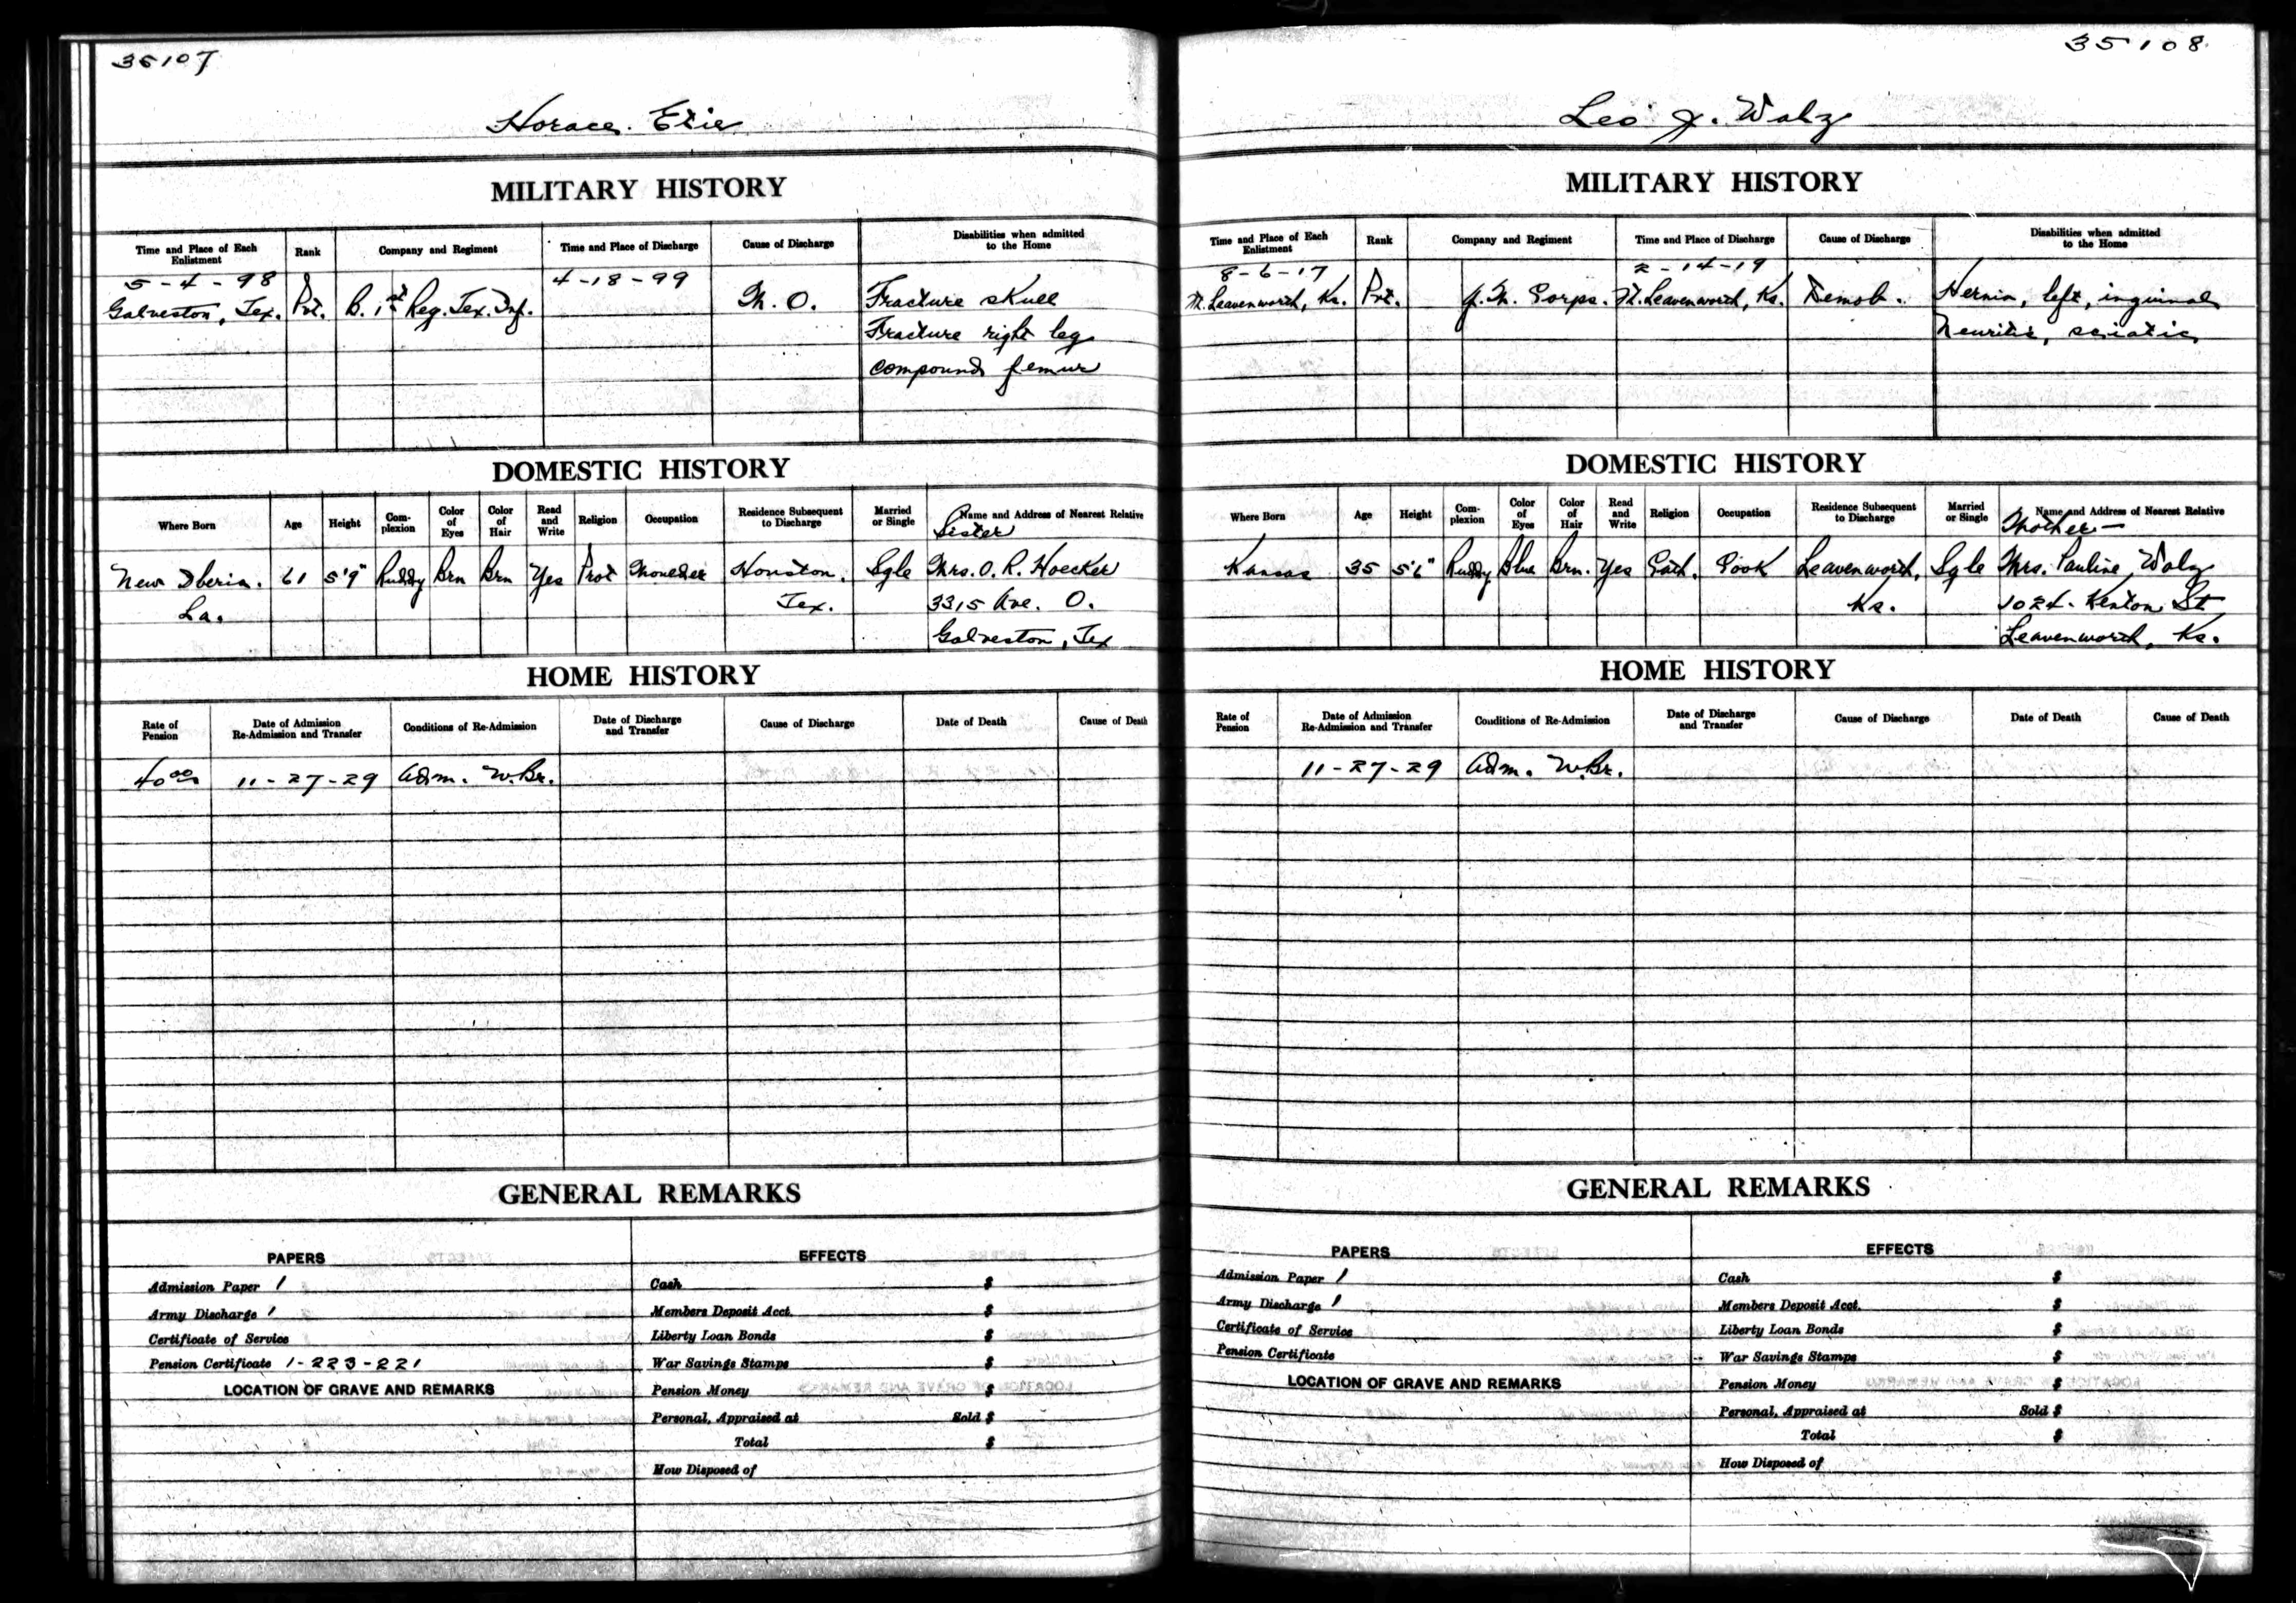 35107
Horace Etie
MILITARY HISTORY
Time and Place of Each Enlistment
Rank
Company and Regiment
Time and Place of Discharge
Cause of Discharge
Disabilities when admitted to the Home
5-4-98
Galveston, Tex.
Pvt.
B. 1st Reg. Tex. Inf.
4-18-99
M. O.
Fracture skull
Fracture right leg
compound femur
DOMESTIC HISTORY
Where Born
Age
Height
Com-plexion
Color of Eyes
Color of Hair
Read and Write
Religion
Occupation
Residence Subsequent to Discharge
Married or Single
Name and Address of Nearest Relative
Sister
New Iberia.
La.
61
5'9"
Ruddy
Brn
Brn
Yes
Prot
Moulder
Houston,
Tex.
Sgle
Mrs. O. R. Hoecker
3315 Ave. O.
Galveston, Tex
HOME HISTORY
Rate of Pension
Date of Admission Re-Admission and Transfer
Conditions of Re-Admission
Date of Discharge and Transfer
Cause of Discharge
Date of Death
Cause of Death
40 00
11-27-29
Adm. W.Br.
GENERAL REMARKS
PAPERS
Admission Paper 1
Army Discharge 1
Certificate of Service
Pension Certificate 1-223-221
LOCATION OF GRAVE AND REMARKS
EFFECTS
Cash $
Members Deposit Acct. $
Liberty Loan Bonds $
War Savings Stamps $
Pension Money $
Personal, Appraised at Sold $
Total $
How Disposed of
35108
Leo J. Walz
MILITARY HISTORY
Time and Place of Each Enlistment
Rank
Company and Regiment
Time and Place of Discharge
Cause of Discharge
Disabilities when admitted to the Home
8-6-17
Ft. Leavenworth, Ks.
Pvt.
Q. M. Corps.
2-14-19
Ft. Leavenworth, Ks.
Demob.
Hernia, left, inguinal
Neuritis, sciatic
DOMESTIC HISTORY
Where Born
Age
Height
Com-plexion
Color of Eyes
Color of Hair
Read and Write
Religion
Occupation
Residence Subsequent to Discharge
Married or Single
Name and Address of Nearest Relative
Mother -
Kansas
35
5'6"
Ruddy
Blue
Brn.
Yes
Cath.
Cook
Leavenworth,
Ks.
Sgle
Mrs. Pauline Walz
1024 - Kenton St
Leavenworth, Ks.
HOME HISTORY
Rate of Pension
Date of Admission Re-Admission and Transfer
Conditions of Re-Admission
Date of Discharge and Transfer
Cause of Discharge
Date of Death
Cause of Death
11-27-29
Adm. W.Br.
GENERAL REMARKS
PAPERS
Admission Paper 1
Army Discharge 1
Certificate of Service
Pension Certificate
LOCATION OF GRAVE AND REMARKS
EFFECTS
Cash $
Members Deposit Acct. $
Liberty Loan Bonds $
War Savings Stamps $
Pension Money $
Personal, Appraised at Sold $
Total $
How Disposed of